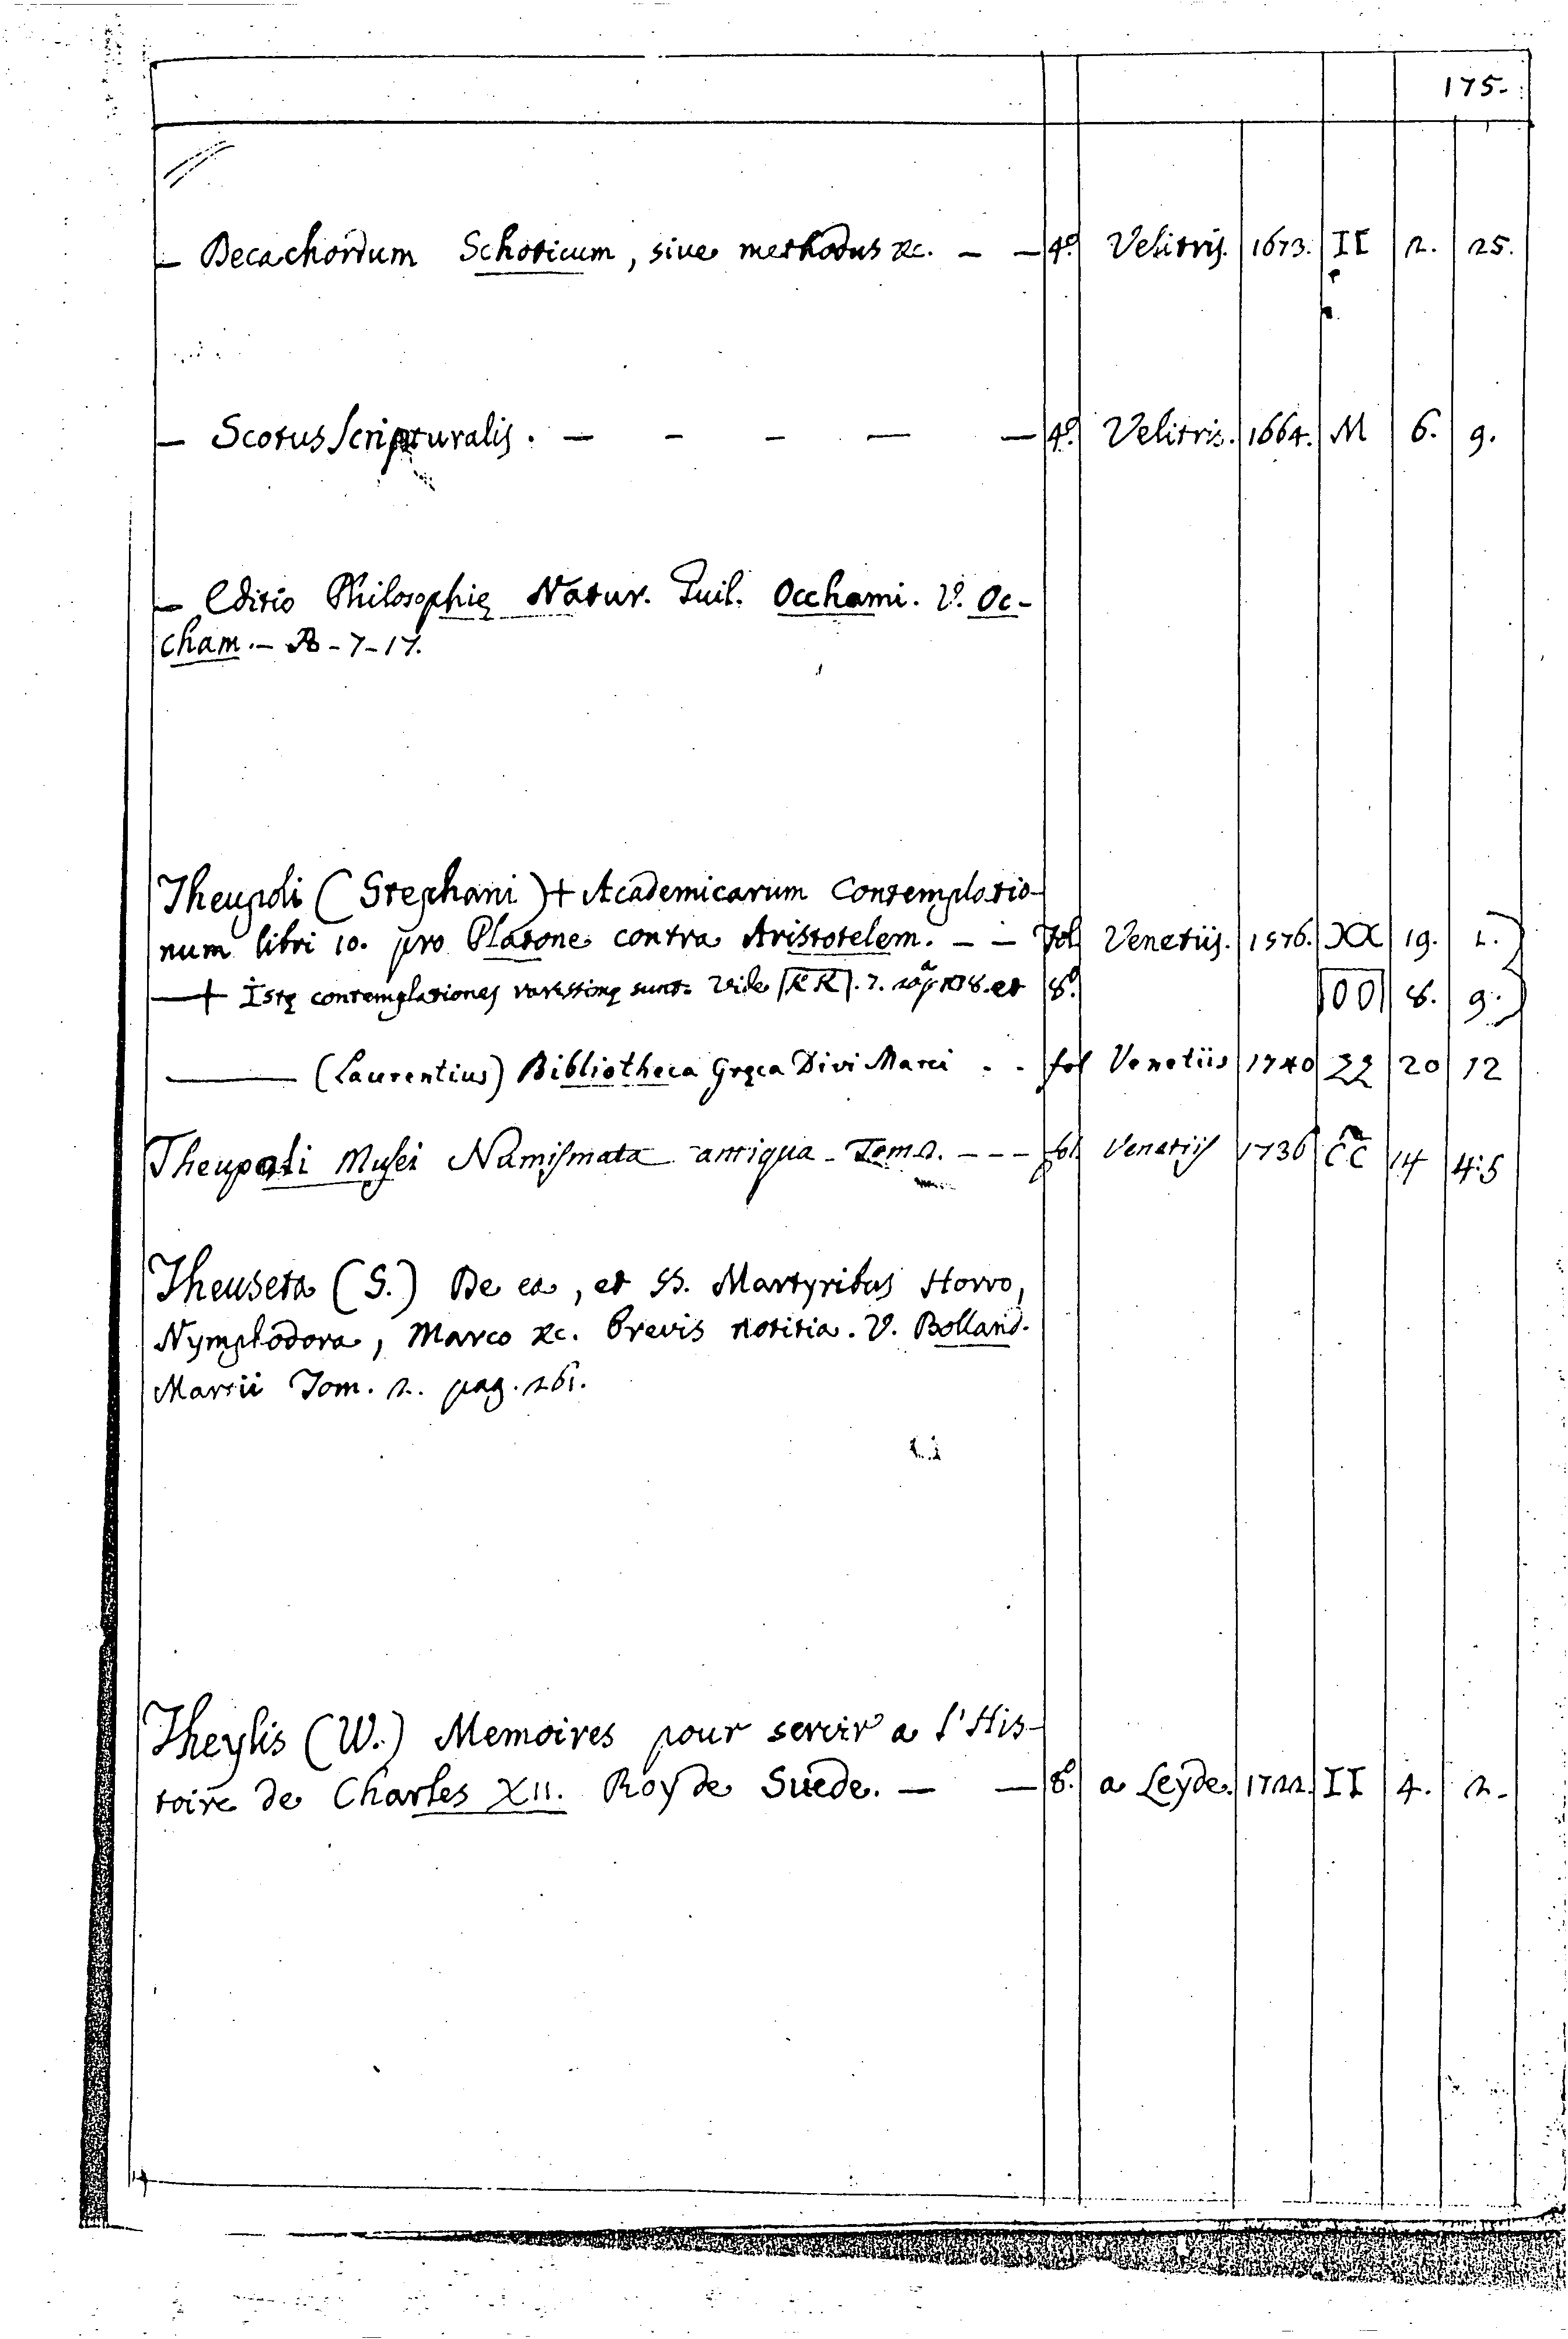 175.
— Decachordum Schoticum, sive methodus &c. — — 4º Velitris. 1673. II 2. 25.
— Scotus Scripturalis. — — — — — 4º Velitris. 1664. M 6. 9.
— Editio Philosophię Natur. Guil. Occhami. V. Oc-
cham. — B - 7 - 17.
Theupoli (Stephani) + Academicarum Contemplatio-
num libri 10. pro Platone contra Aristotelem. — — Fol. Venetiis. 1576. XX 19. 1.
—+ Istę contemplationes rarissimę sunt. Vide KK. 7. et 8º. OO 8. 9.
——— (Laurentius) Bibliotheca Gręca Divi Marci . . fol Venetiis 1740 22 20 12
Theupoli Musei Numismata antiqua - Tom 2. - - - fol. Venetiis 1736 CC 14 4:5
Theuseta (S.) De ea, et SS. Martyribus Horro,
Nymphodora, Marco &c. brevis notitia. V. Bolland.
Martii Tom. 2. pag. 261.
Theylis (W.) Memoires pour servir a l'His-
toire de Charles XII. Roy de Suede. — — 8º. a Leyde. 1722. II 4. 2.